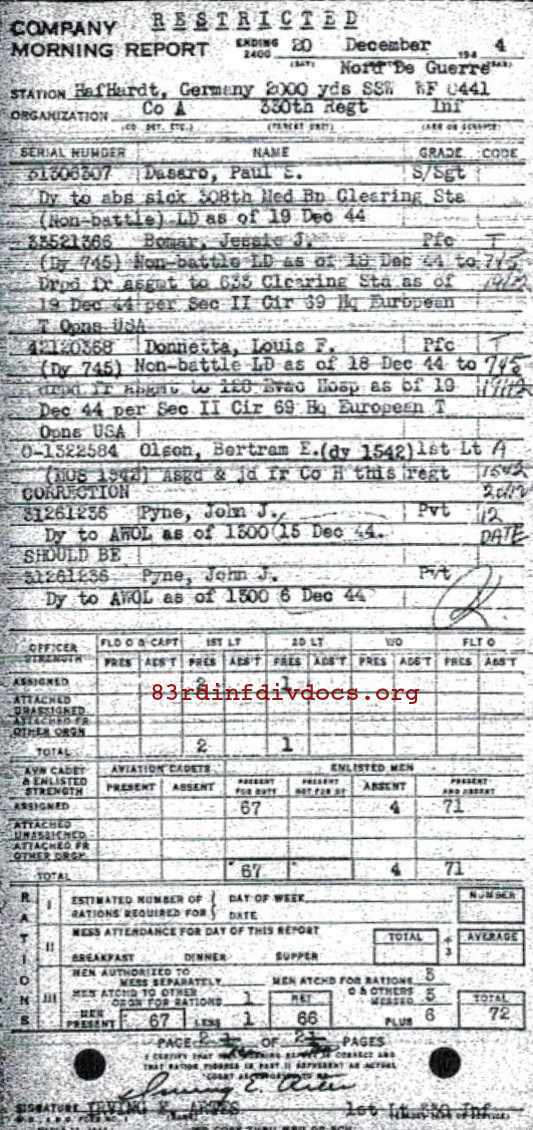 RESTRICTED
COMPANY
MORNING REPORT ENDING 2400 20 December 194 4
Nord De Guerre
STATION HafHardt, Germany 2000 yds SSW WF 0441
ORGANIZATION Co A 330th Regt Inf
SERIAL NUMBER NAME GRADE CODE
31306307 Dasaro, Paul S/Sgt
Dy to abs sick 308th Med Bn Clearing Sta
(Non-battle) LD as of 19 Dec 44
33521366 Bomar, Jessie J. Pfc T
(Dy 745) Non-battle LD as of 18 Dec 44 to 745
Drpd fr asgmt to 635 Clearing Sta as of
19 Dec 44 per Sec II Cir 69 Hq European
T Opns USA
42120368 Donnetta, Louis F. Pfc T
(Dy 745) Non-battle LD as of 18 Dec 44 to 745
drpd fr asgmt to 128 Evac Hosp as of 19
Dec 44 per Sec II Cir 69 Hq European T
Opns USA
O-1322584 Olson, Bertram E.(dy 1542) 1st Lt A
(MOS 1542) Asgd & jd fr Co H this regt 1542
CORRECTION
31261236 Pyne, John J. Pvt 12
Dy to AWOL as of 1300 15 Dec 44. DATE
SHOULD BE
31261236 Pyne, John J. Pvt
Dy to AWOL as of 1300 6 Dec 44
OFFICER STRENGTH FLD O & CAPT 1ST LT 2D LT W/O FLT O
PRES ABS'T PRES ABS'T PRES ABS'T PRES ABS'T PRES ABS'T
ASSIGNED 2 1
83rdinfdivdocs.org
ATTACHED UNASSIGNED
ATTACHED FR OTHER ORGN
TOTAL 2 1
AVN CADET & ENLISTED STRENGTH AVIATION CADETS ENLISTED MEN
PRESENT ABSENT PRESENT FOR DUTY PRESENT NOT FOR DY ABSENT PRESENT AND ABSENT
ASSIGNED 67 4 71
ATTACHED UNASSIGNED
ATTACHED FR OTHER ORGN
TOTAL 67 4 71
RATIONS
I ESTIMATED NUMBER OF RATIONS REQUIRED FOR DAY OF WEEK DATE NUMBER
II MESS ATTENDANCE FOR DAY OF THIS REPORT TOTAL ÷ 3 AVERAGE
BREAKFAST DINNER SUPPER
III MEN AUTHORIZED TO MESS SEPARATELY MEN ATCHD FOR RATIONS 3
MEN ATCHD TO OTHER ORGN FOR RATIONS 1 NET O & OTHERS MESSED 3 TOTAL
MEN PRESENT 67 LESS 1 66 PLUS 6 72
PAGE OF PAGES
I CERTIFY THAT THIS MORNING REPORT IS CORRECT AND
THAT RATION FIGURES IN PART II REPRESENT AN ACTUAL
SIGNATURE IRVING E. 1st Lt 330 Inf